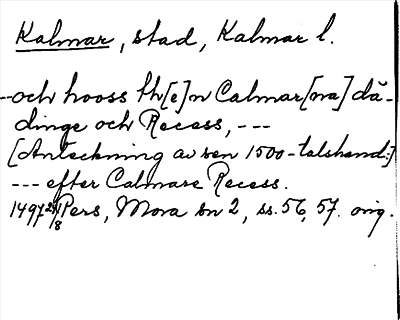 Kalmar, stad, Kalmar l.
--och hooss th[e]n Calmar[na] då-
dinge och Recess, ---
[Anteckning av sen 1500-talshand:]
--- efter Calmare Recess.
1497 21/8 Pers, Mora sn 2, ss. 56, 57. orig.